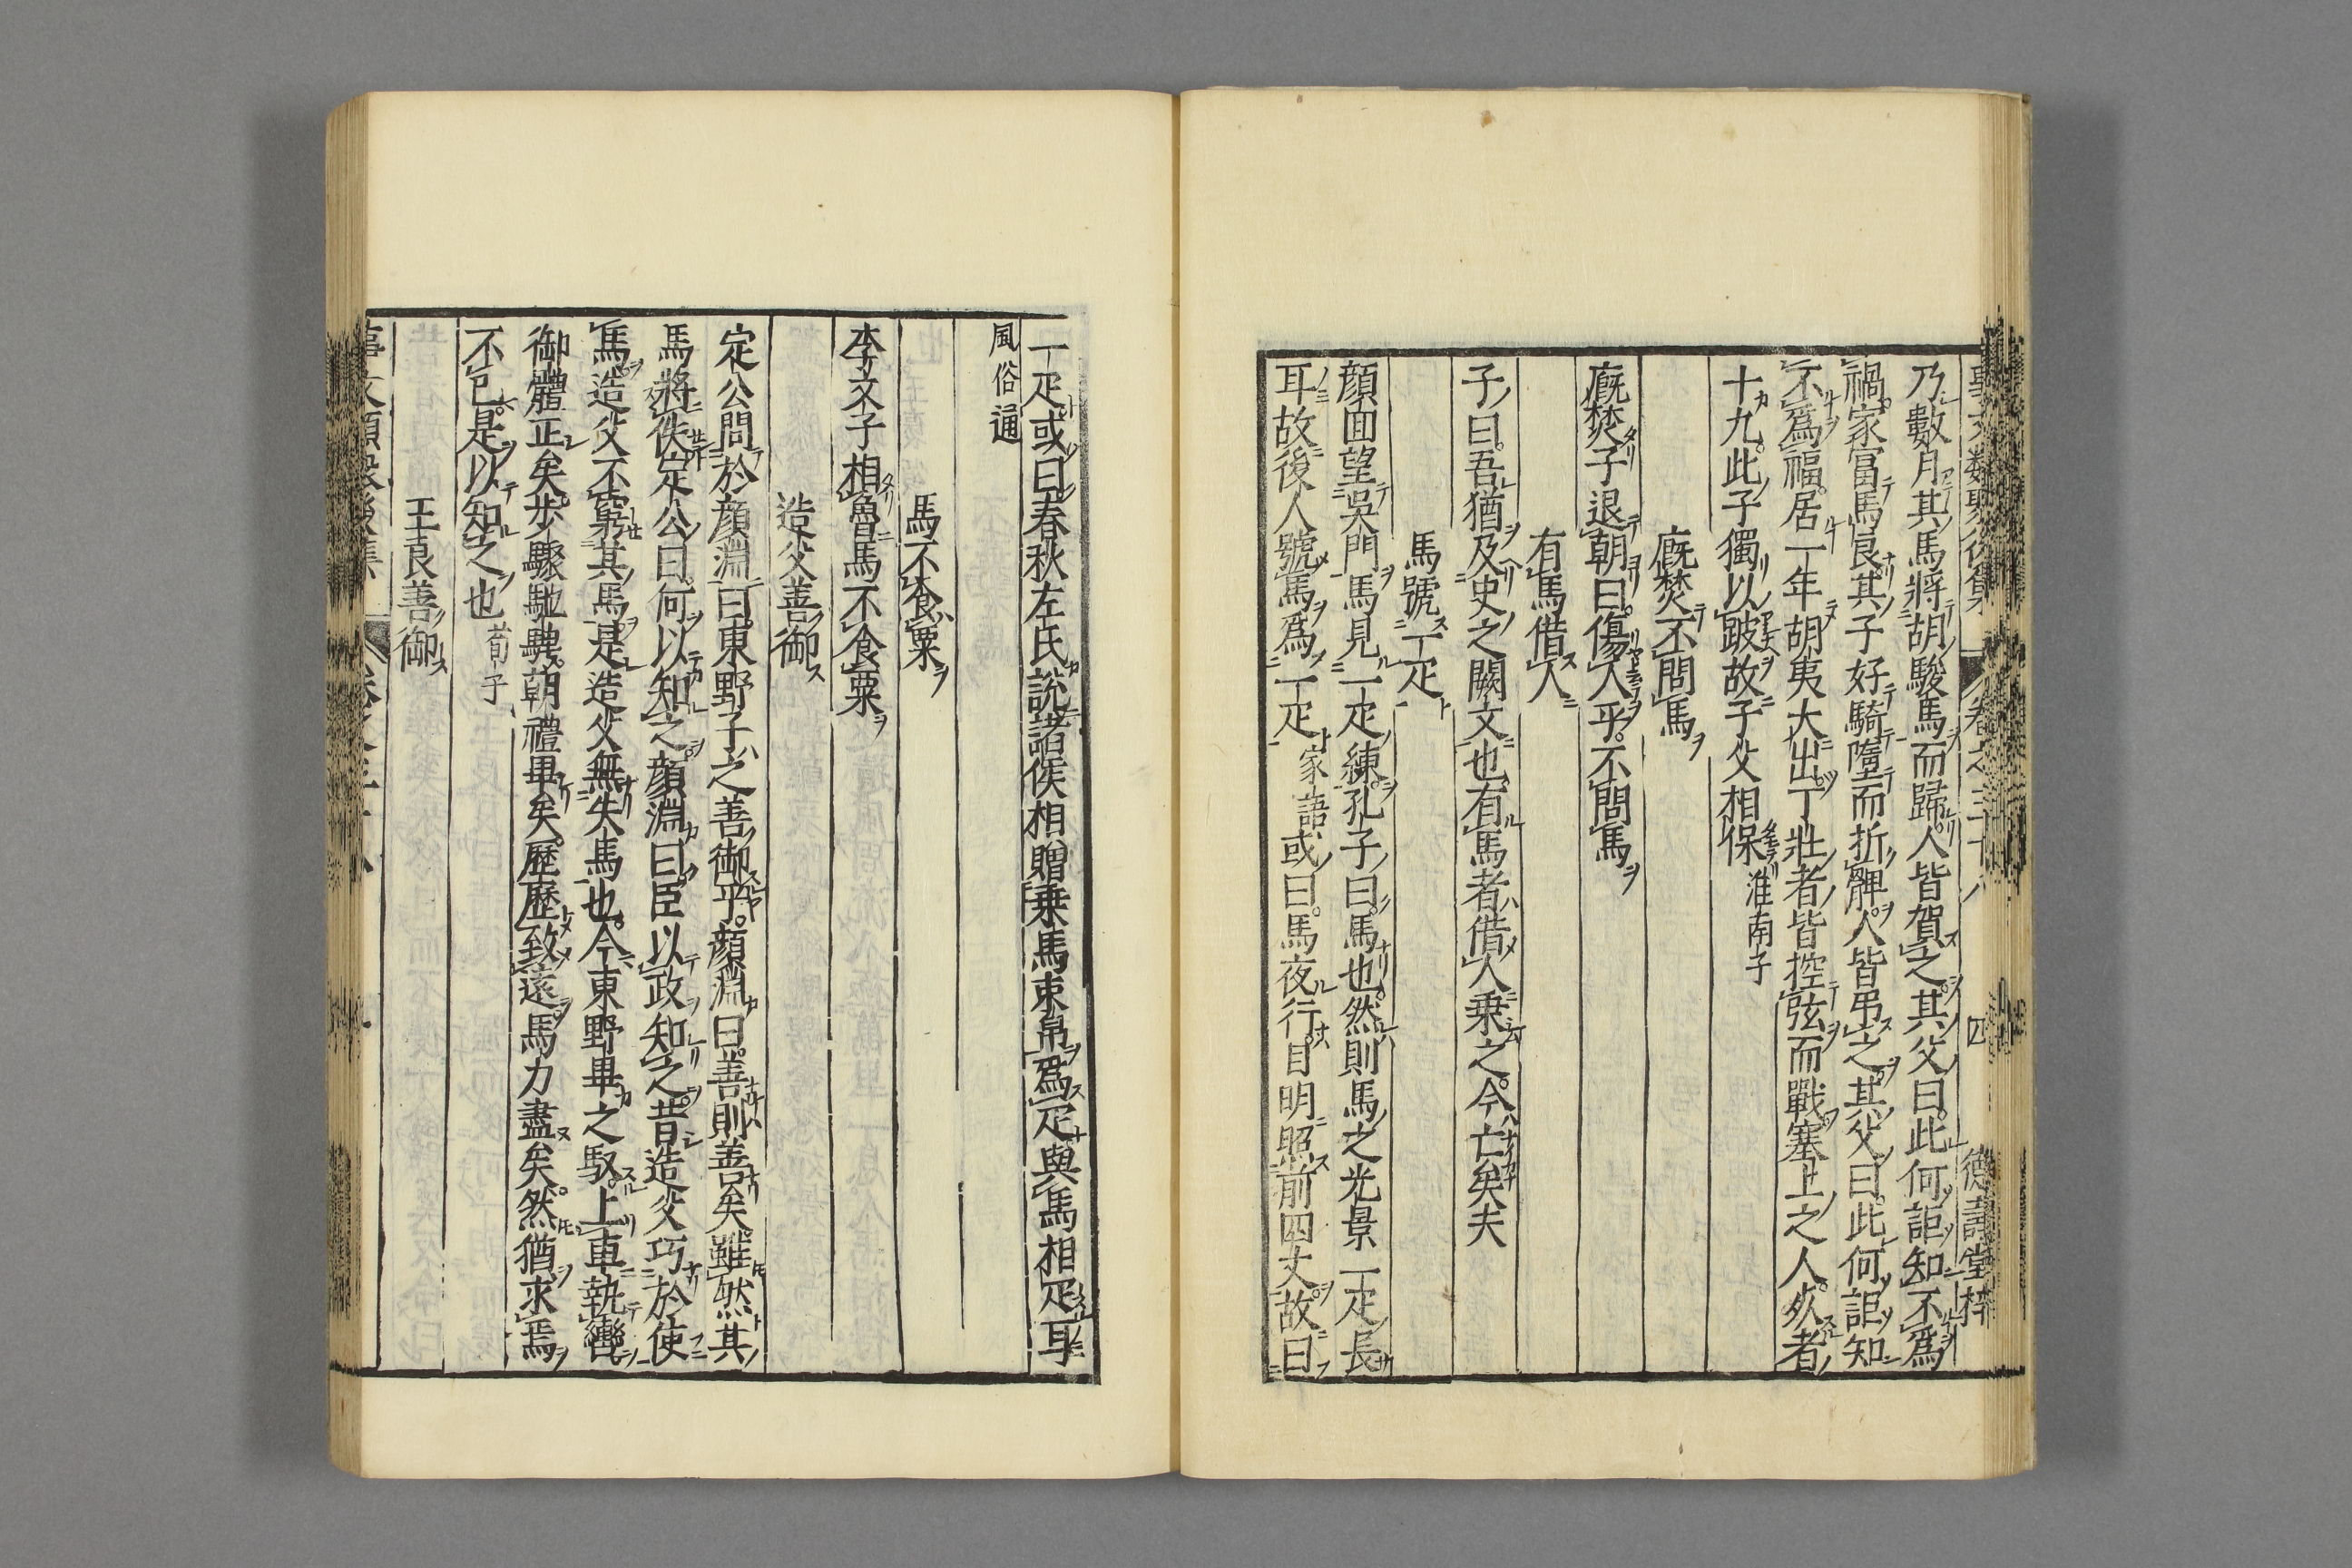 事文類聚後集 卷之三十八 四 德壽堂梓
乃數月其馬將胡駿馬而歸人皆賀之其父曰此何詎知不爲
禍家富馬良其子好騎墮而折髀人皆弔之其父曰此何詎知
不爲福居一年胡夷大出丁壯者皆控弦而戰塞上之人死者
十九此子獨以跛故子父相保淮南子
廐焚不問馬
廐焚子退朝曰傷人乎不問馬
有馬借人
子曰吾猶及史之闕文也有馬者借人乗之今亡矣夫
馬號一疋
顔回望吳門馬見一疋練孔子曰馬也然則馬之光景一疋長
耳故後人號馬爲一疋家語或曰馬夜行目明照前四丈故曰
一疋或曰春秋左氏說諸侯相贈乗馬束帛爲疋與馬相疋耳
風俗通
馬不食粟
李文子相魯馬不食粟
造父善御
定公問於顔淵曰東野子之善御乎顔淵曰善則善矣雖然其
馬將佚定公曰何以知之顔淵曰臣以政知之昔造父巧於使
馬造父不窮其馬是造父無失馬也今東野畢之馭上車執轡
御體正矣步驟馳騁朝禮畢矣歷歷致遠馬力盡矣然猶求焉
不已是以知之也荀子
王良善御
事文類聚後集